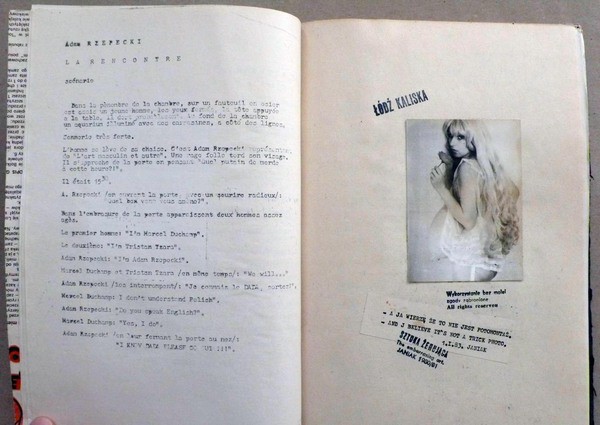 Adam RZEPECKI
LA RENCONTRE
scénario
Dans la pénombre de la chambre, sur un fauteuil en osier
est assis un jeune homme, les yeux fermés, la tête appuyée
à la table, il dort le fond de la chambre
un aquarium illuminé avec des
Sonnerie très forte.
L'homme se lève de sa chaise. C'est Adam Rzepecki
de "L'art masculin et autre". Une rage folle tord son visage.
Il s'approche de la porte en pensant "Quel putain de merde
à cette heure?!".
Il était 15³⁰.
A. Rzepecki /en ouvrant la porte, avec un sourire radieux/:
"Quel bon vent vous amène?".
Dans l'embrasure de la porte apparaissent deux hommes assez
agés.
Le premier homme: "I'm Marcel Duchamp".
Le deuxième: "I'm Tristan Tzara".
Adam Rzepecki: "I'm Adam Rzepecki".
Marcel Duchamp et Tristan Tzara /en même temps/: "We will..."
Adam Rzepecki /les interrompant/: "Je connais le DADA, sortez!".
Marcel Duchamp: I don't understand Polish".
Adam Rzepecki: "Do you speak English?".
Marcel Duchamp: "Yes, I do".
Adam Rzepecki /en leur fermant la porte au nez/:
"I KNOW DADA PLEASE GO OUT !!!".
ŁÓDŹ KALISKA
Wykorzystanie bez mojej
zgody zabronione
All rights reserved
- A JA WIERZĘ ŻE TO NIE JEST FOTOMONTAŻ.
- AND J BELIEVE IT'S NOT A TRICK PHOTO.
1.I.83. JANIAK
SZTUKA ŻENUJĄCA
The embarrassing art.
JANIAK 1980/81